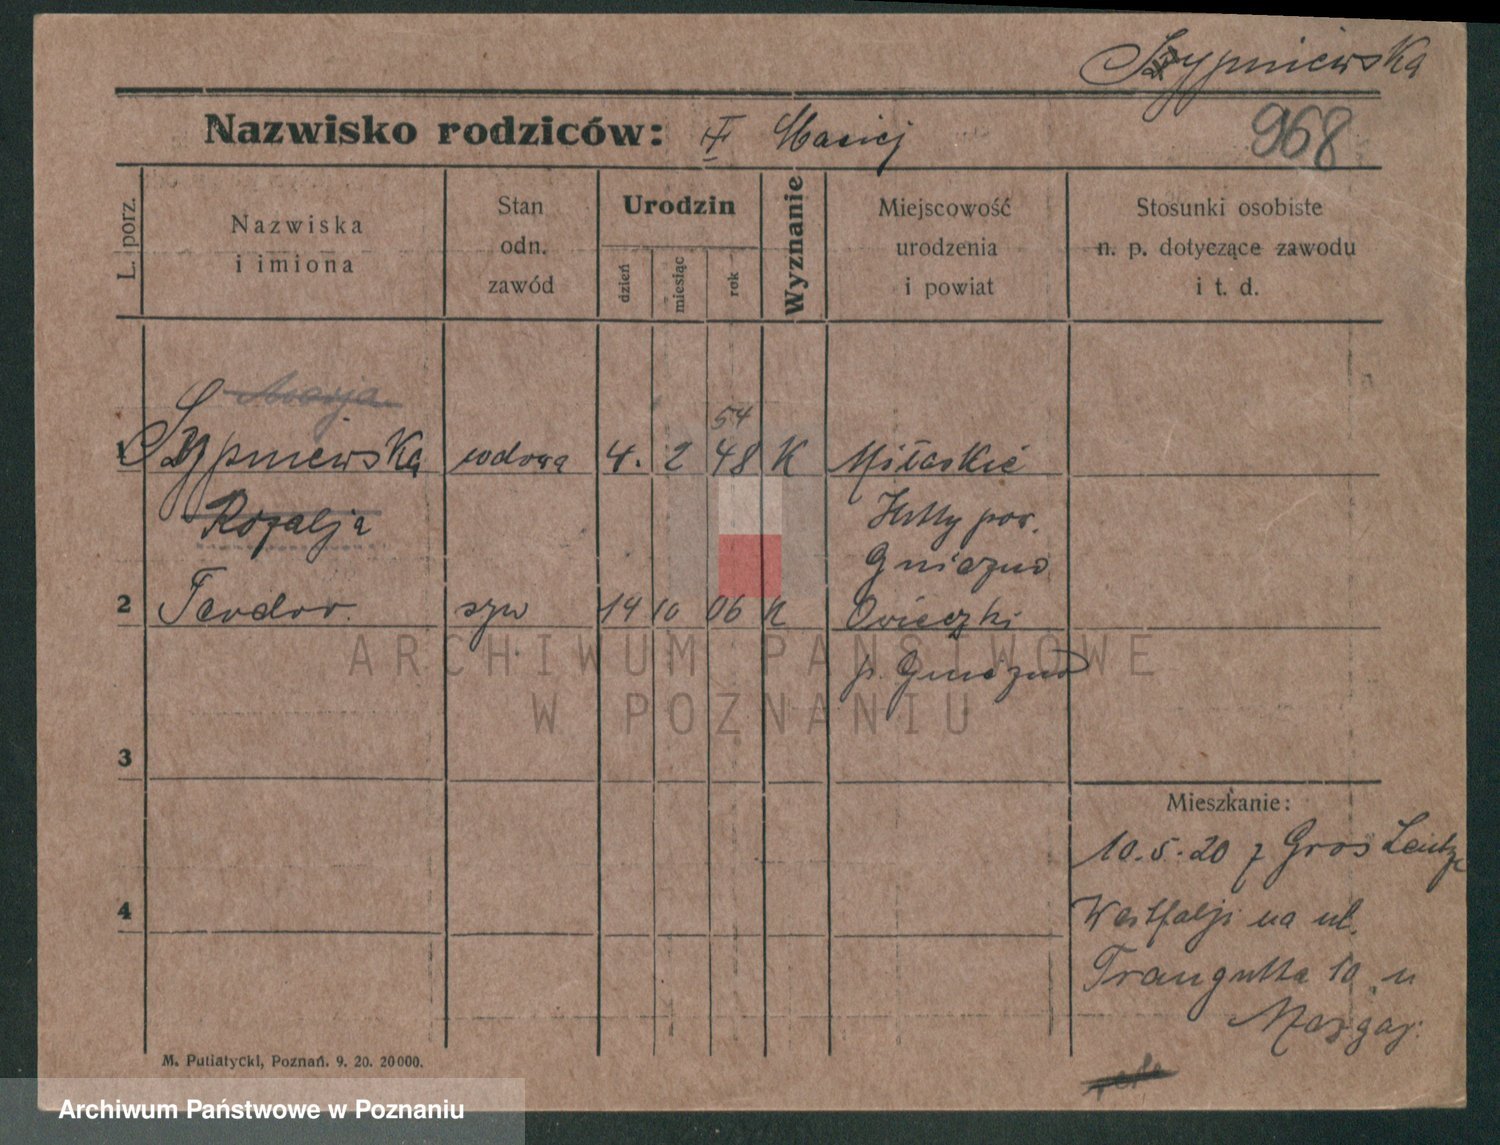 Sypniewska
968
Nazwisko rodziców: Maciej
L. porz.
Nazwiska
i imiona
Stan
odn.
zawód
Urodzin
dzień
miesiąc
rok
Wyznanie
Miejscowość
urodzenia
i powiat
Stosunki osobiste
n. p. dotyczące zawodu
i t. d.
Marja
54
1 Sypniewska wdowa 4. 2 48 K
Rozalja
Hutty pow.
Gniezno
2 Teodor szw 14 10 06 K Owieczki
p. Gniezno
ARCHIWUM PAŃSTWOWE
W POZNANIU
3
Mieszkanie:
10.5.20 z Gros
4
Westfalji na ul.
10 u
M. Putiatycki, Poznań. 9. 20. 20000.
Archiwum Państwowe w Poznaniu